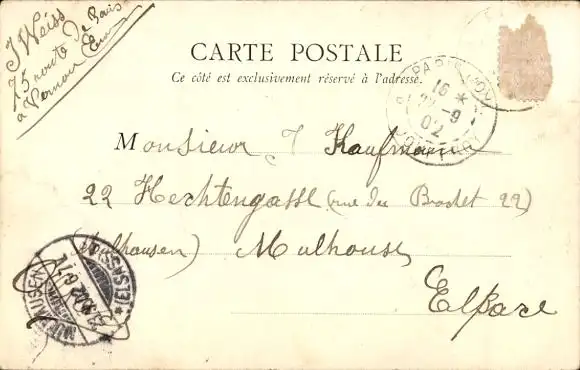 J Weiss
75 route de Paris
à Vernon Eure
CARTE POSTALE
Ce côté est exclusivement réservé à l'adresse.
PARIS
16 *
22 - 9
02
DEPART
Monsieur J Kaufmann
22 Hechtengasse (rue du Brochet 22)
(Mulhausen) Mulhouse
Elsace
MÜLHAUSEN
(ELSASS)
23.9.02